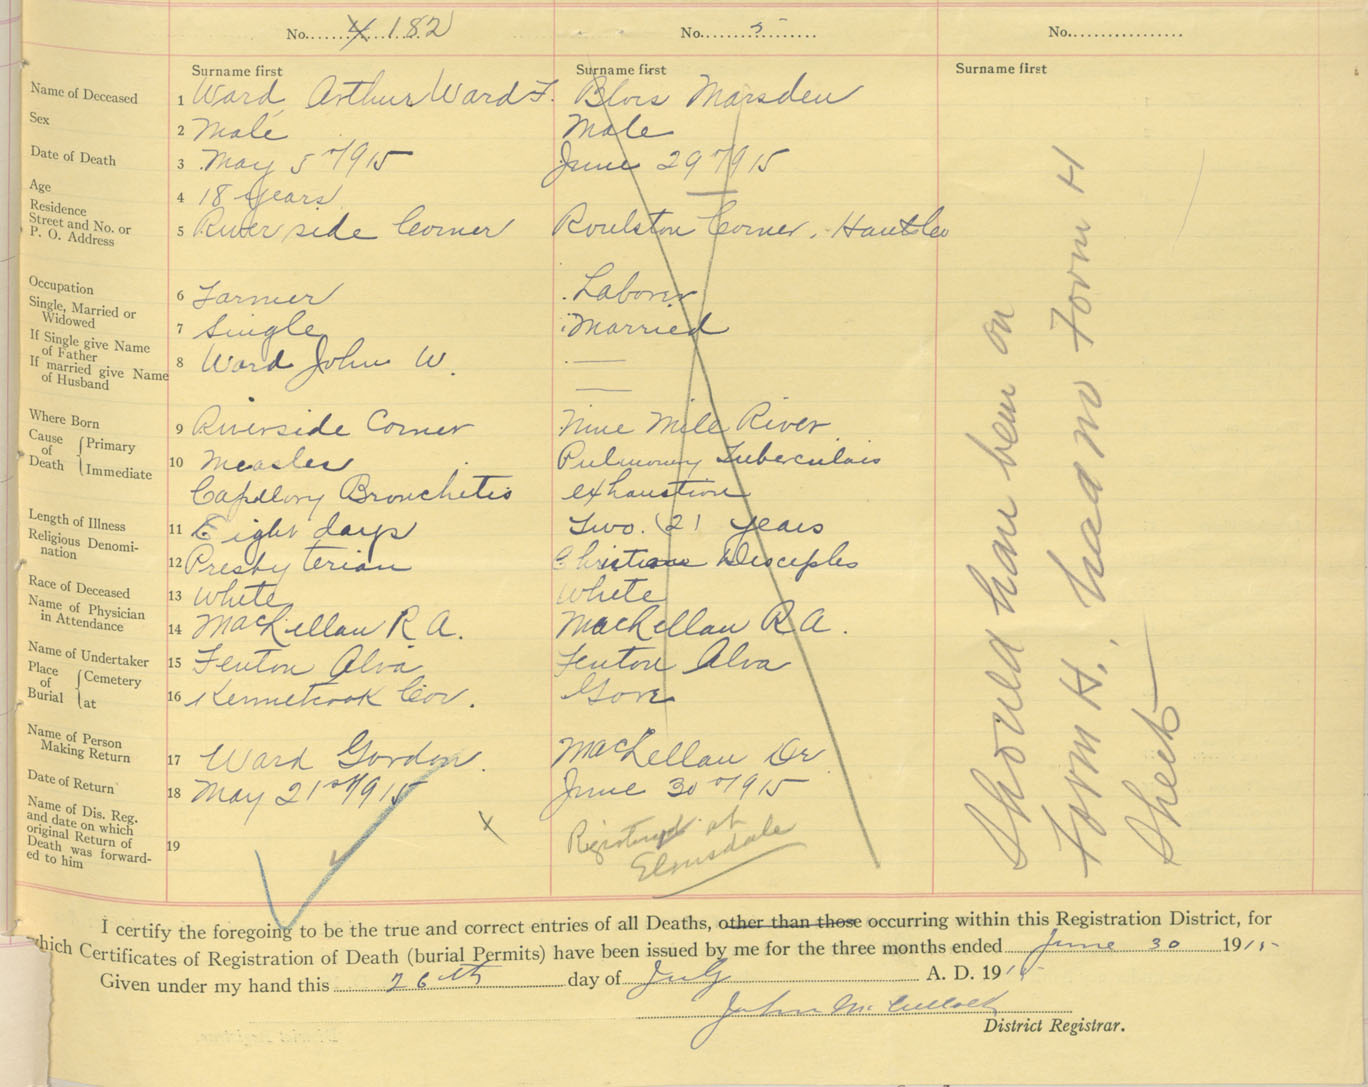 No. 4 182
No. 5
No.
Surname first
Surname first
Surname first
Name of Deceased 1 Ward, Arthur Ward F. Blois Marsden
Sex 2 Male Male
Date of Death 3 May 5th 1915 June 29th 1915
Age 4 18 years —
Residence
Street and No. or
P. O. Address 5 River side Corner Roulston Corner, Hants Co
Occupation 6 Farmer Laborer
Single, Married or
Widowed 7 Single Married
If Single give Name
of Father 8 Ward John W. —
If married give Name
of Husband —
Where Born 9 Riverside Corner Nine Mile River
Cause of Death { Primary 10 Measles Pulmonary Tuberculais
Immediate Capillary Bronchitis exhaustion
Length of Illness 11 Eight days Two (2) years
Religious Denomi-
nation 12 Presbyterian Christians Disciples
Race of Deceased 13 White White
Name of Physician
in Attendance 14 MacLellan R A. MacLellan R A.
Name of Undertaker 15 Fenton Alva Fenton Alva
Place of Burial { Cemetery at 16 Kennetcook Cor. Gore
Name of Person
Making Return 17 Ward Gordon. MacLellan Dr
Date of Return 18 May 21st 1915 June 30th 1915
Name of Dis. Reg.
and date on which
original Return of
Death was forward-
ed to him 19
x
Registered at
Elmsdale
Should have been on
Form H., had no Form H
Sheet
I certify the foregoing to be the true and correct entries of all Deaths, other than those occurring within this Registration District, for
which Certificates of Registration of Death (burial Permits) have been issued by me for the three months ended June 30 1915
Given under my hand this 26th day of July A. D. 1915
John McCulloch
District Registrar.